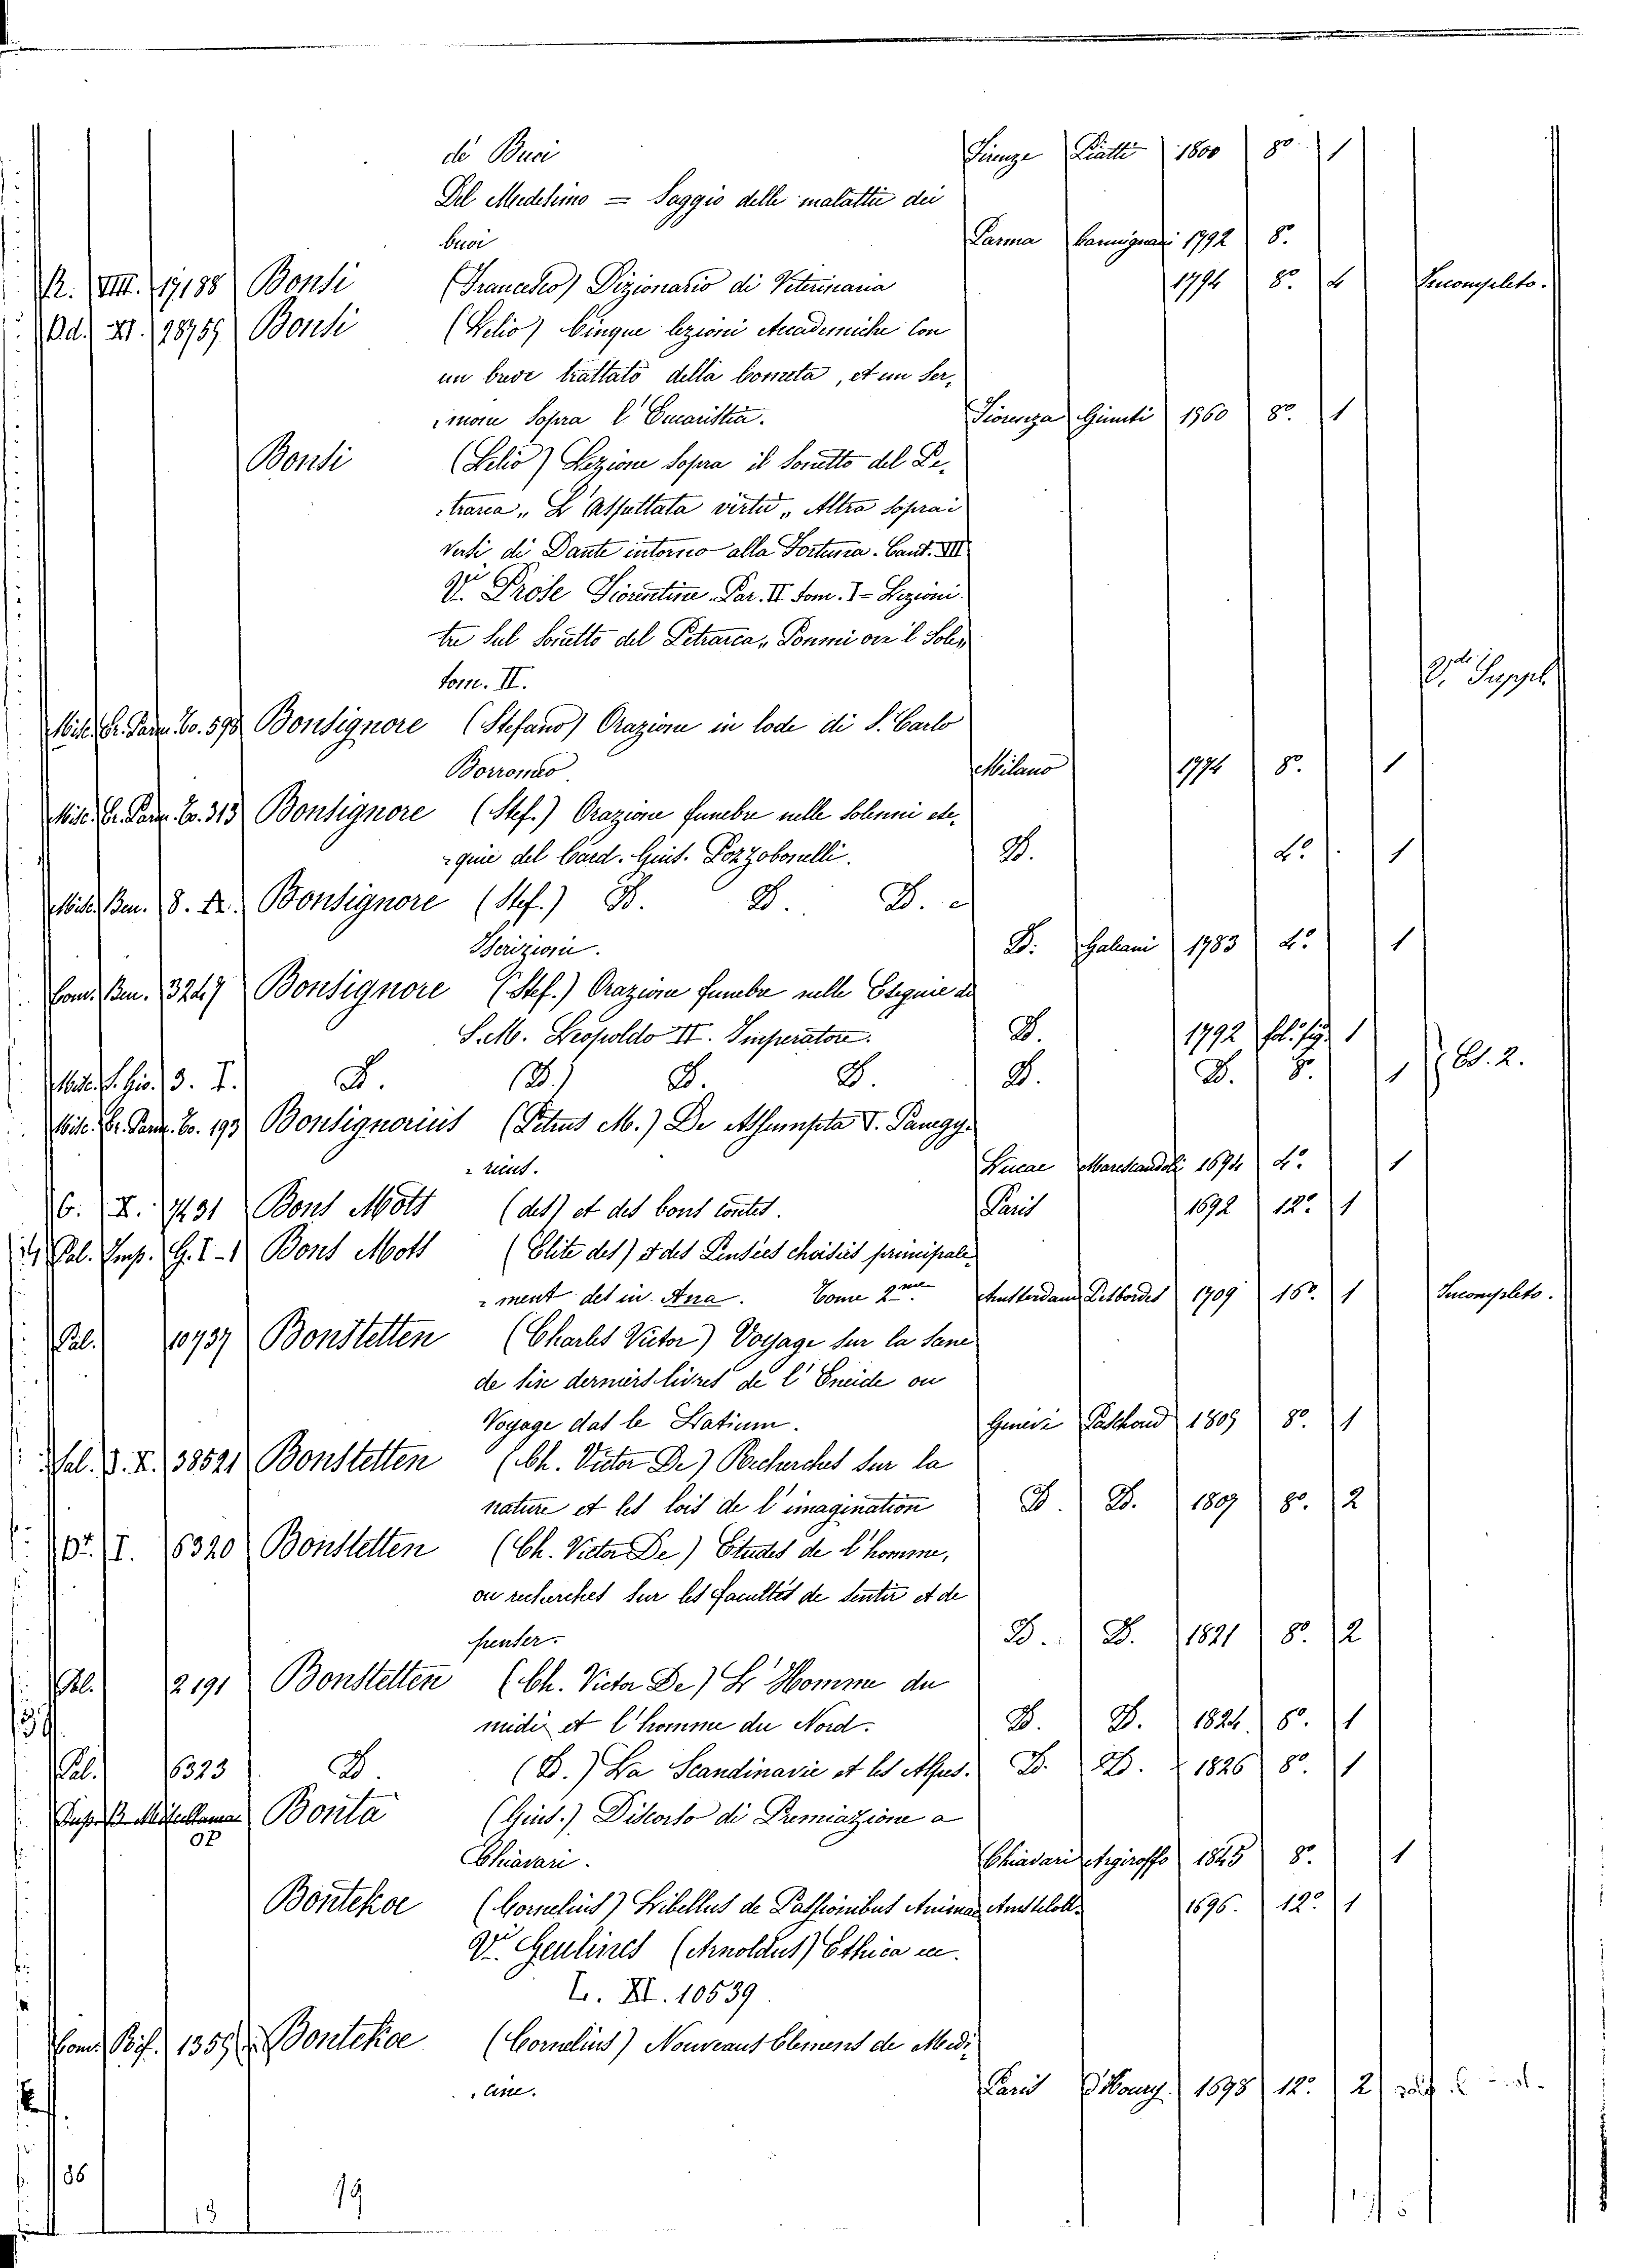 de Buci Firenze Piatti 1800 8º 1
Del Medesimo = Saggio delle malattie dei
buoi Parma Carmignani 1792 8º
R. VIII. 17188 Bonsi (Francesco) Dizionario di Veterinaria 1794 8º 4 Incompleto.
Od. XI. 28759 Bonsi (Lelio) Cinque lezioni Accademiche Con
un breve trattato della Cometa, et un Ser,
more Sopra l'Eucaristia. Fiorenza Giunti 1560 8º 1
Bonsi (Lelio) Lezione Sopra il Sonetto del Pe,
trarca „ L'Aspettata virtù „ Altra Soprai
Versi di Dante intorno alla Fortuna. Cant. VII
Vi Prose Fiorentine. Par. II tom. I - Lezioni
tre Sul Sonetto del Petrarca „ Ponmi ove 'l Sole „
tom. II. Vdi Suppl.
Misc. Er. Parm. Co. 598 Bonsignore (Stefano) Orazione in lode di S. Carlo
Borromeo Milano 1774 8º 1
Misc. Er. Parm. Co. 313 Bonsignore (Stef.) Orazione funebre nelle Solenni ese,
quie del Card. Gius. Pozzobonelli. D. 4º 1
Misc. Ben. 8. 4. Bonsignore (Stef.) D. D. D. e
Iscrizioni. D. Galeani 1783 4º 1
Com. Ben. 3247 Bonsignore (Stef.) Orazione funebre nelle Esequie di
S. M. Leopoldo II. Imperatore. D. 1792 fol. fig. 1
3. I. D. (D.) D. D. D. D. 8º 1 Es. 2.
Misc. Er. Parm. Co. 193 Bonsignorius (Petrus M.) De Assumpta V. Panegy,
ricus. Lucae Marescandoli 1694 4º 1
G. X. 7431 Bons Mots (des) et des bons contes. Paris 1692 12º 1
Pal. Imp. G. I - 1 Bons Mots (Elite des) & des Pensées choisies principale,
ment des in Ana. Tome 2me Amsterdam Desbordes 1709 16º 1 Incompleto.
Pal. 10737 Bonstetten (Charles Victor) Voyage sur la Sane
de sise derniers livres de l'Eneide ou
Voyage das le Latium. Geneve Paschoud 1805 8º 1
Pal. 38521 Bonstetten (Ch. Victor De) Recherches sur la
nature et les lois de l'imagination D. D. 1807 8º 2
I. 6320 Bonstetten (Ch. Victor De) Etudes de l'homme,
ou recherches sur les facultés de sentir et de
penser. D. D. 1821 8º 2
Pal. 2191 Bonstetten (Ch. Victor De) L'Homme du
midi et l'homme du Nord. D. D. 1824 8º 1
Pal. 6323 D. (D.) La Scandinavie et les Alpes. D. D. 1826 8º 1
Bonta (Gius.) Discorso di Premiazione a
Chiavari. Chiavari Argiroffo 1845 8º 1
Bontekoe (Cornelius) Libellus de Passionibus Animae Amstelod. 1696. 12º 1
Vi Geulines (Arnoldus) Ethica in
L. XI. 10539.
Com. 1359 Bontekoe (Cornelius) Nouveaus Elemens de Medi,
cine. Paris D'Houry. 1698 12º 2
86
13
19